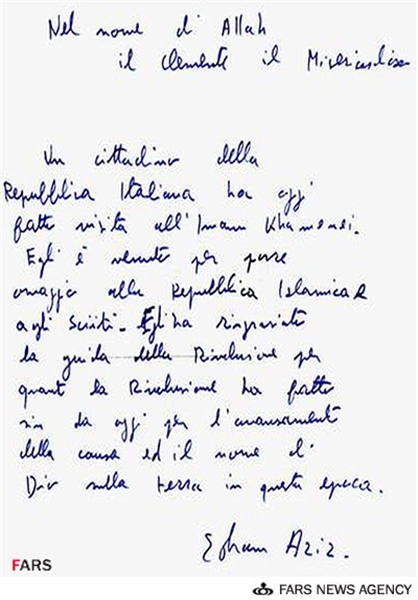 Nel nome di Allah
il Clemente il Misericordioso
Un cittadino della
Repubblica Italiana ha oggi
fatto visita all'Imam Khamenei.
Egli è venuto per porre
omaggio alla Repubblica Islamica e
agli Sciiti. Egli ha ringraziato
la guida della Rivoluzione per
quanto la Rivoluzione ha fatto
sin da oggi per l'avanzamento
della causa ed il nome di
Dio sulla terra in questa epoca.
Aziz.
FARS
FARS NEWS AGENCY